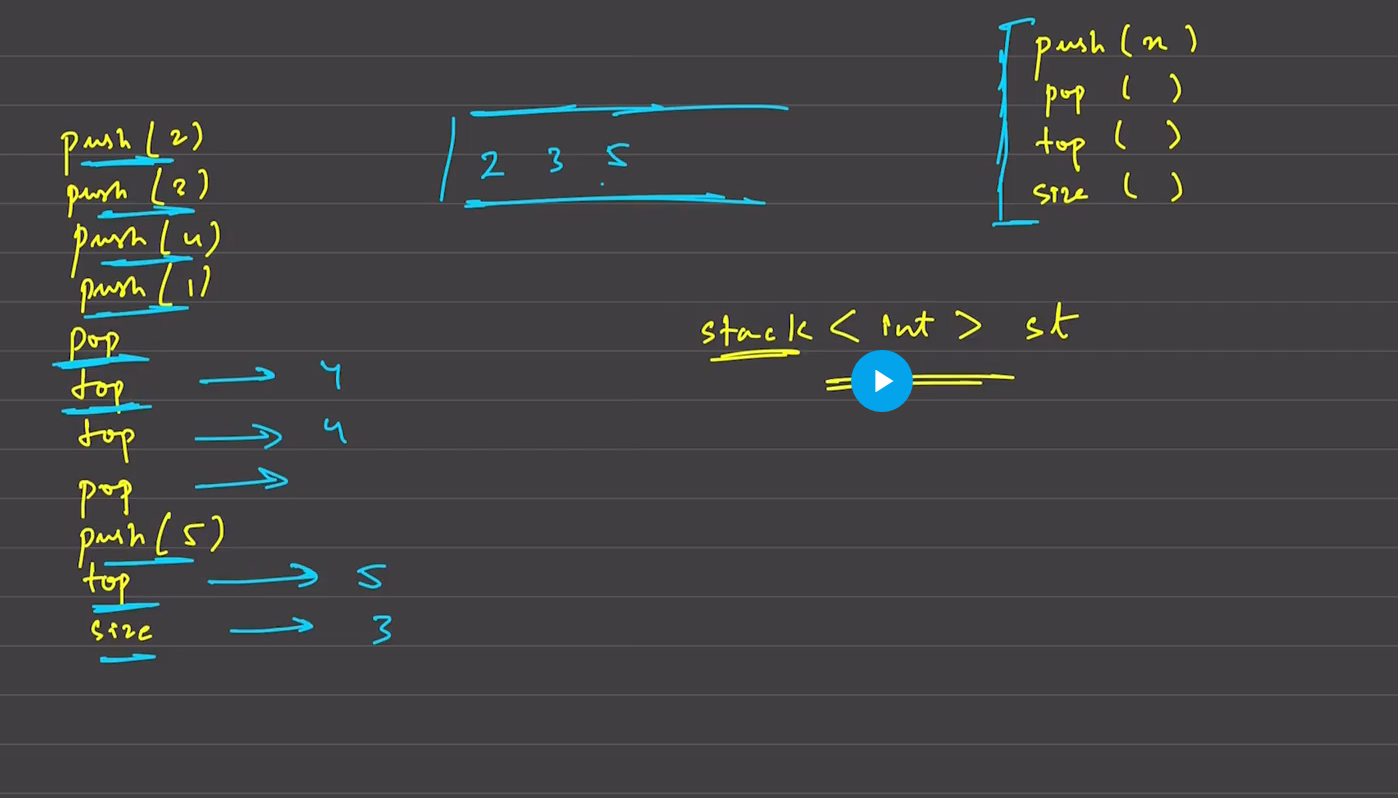 push(2)
push(3)
push(4)
push(1)
pop
top → 4
top → 4
pop →
push(5)
top → 5
size → 3
2 3 5
push(x)
pop()
top()
size()
stack<int> st